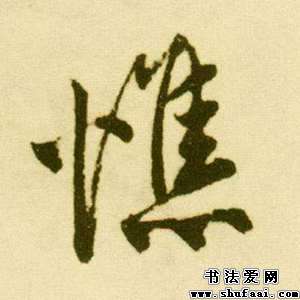 憔
书法爱网
www.shufaai.com